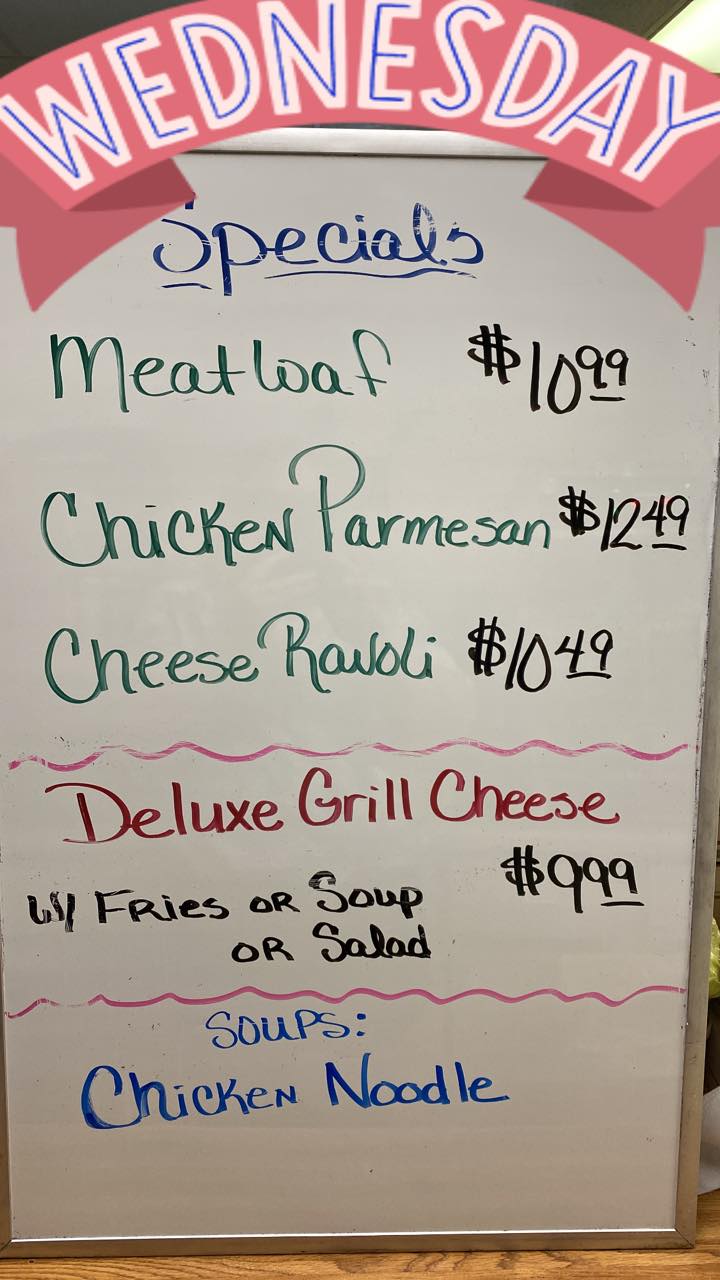 WEDNESDAY
Specials
Meatloaf $10.99
Chicken Parmesan $12.49
Cheese Ravoli $10.49
Deluxe Grill Cheese
$9.99
W/ Fries or Soup
or Salad
Soups:
Chicken Noodle